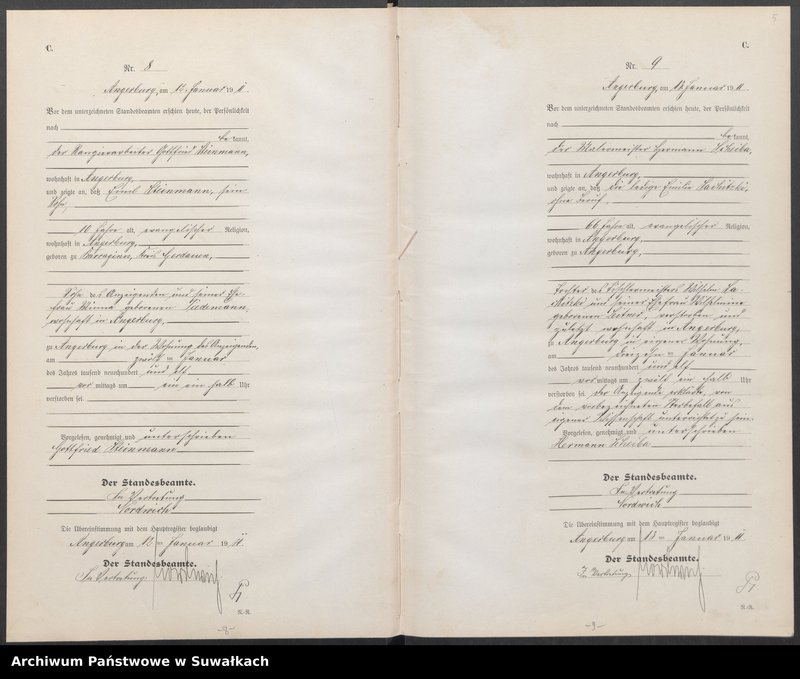 C.
Nr. 8
Angerburg, am 12. Januar 1911.
Vor dem unterzeichneten Standesbeamten erschien heute, der Persönlichkeit
nach
be kannt,
der Rangierarbeiter Gottfried Steinmann,
wohnhaft in Angerburg,
und zeigte an, daß Emil Steinmann, sein
Sohn,
10 Jahre alt, evangelischer Religion,
wohnhaft in Angerburg,
geboren zu Kreis Gerdauen,
Sohn des Anzeigenden und seiner Ehe-
frau Minna geborenen Tiedemann,
wohnhaft in Angerburg,
zu Angerburg in der Wohnung des Anzeigenden,
am zwölften Januar
des Jahres tausend neunhundert und elf
vor mittags um ein ein halb Uhr
verstorben sei.
Vorgelesen, genehmigt und unterschrieben
Gottfried Steinmann
Der Standesbeamte.
In Vertretung
Nordwich
Die Übereinstimmung mit dem Hauptregister beglaubigt
Angerburg am 12 ten Januar 1911.
Der Standesbeamte.
In Vertretung
R.-R.
-8-
5
C.
Nr. 9
Angerburg, am 13. Januar 1911.
Vor dem unterzeichneten Standesbeamten erschien heute, der Persönlichkeit
nach
be kannt,
der Malermeister Hermann Scheiba,
wohnhaft in Angerburg,
und zeigte an, daß die ledige Emilie
ohne Beruf,
66 Jahre alt, evangelischer Religion,
wohnhaft in Angerburg,
geboren zu Angerburg,
Tochter des Tischlermeisters Wilhelm
und seiner Ehefrau Wilhelmine
geborenen verstorben und
zuletzt wohnhaft in Angerburg,
zu Angerburg in eigener Wohnung,
am dreizehnten Januar
des Jahres tausend neunhundert und elf
vor mittags um zwölf ein halb Uhr
verstorben sei. der Anzeigende erklärte, von
dem vorbezeichneten Sterbefall aus
eigener Wissenschaft unterrichtet zu sein.
Vorgelesen, genehmigt und unterschrieben
Hermann Scheiba
Der Standesbeamte.
In Vertretung
Nordwich
Die Übereinstimmung mit dem Hauptregister beglaubigt
Angerburg am 13 ten Januar 1911.
Der Standesbeamte.
In Vertretung
R.-R.
-9-
Archiwum Państwowe w Suwałkach